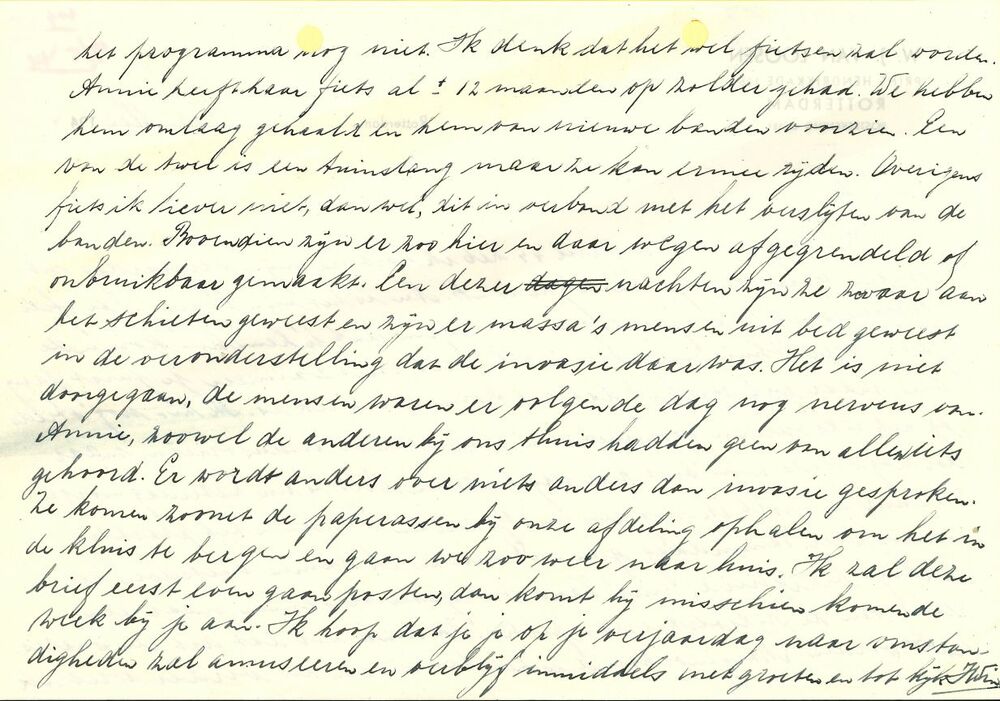 het programma nog niet. Ik denk dat het wel fietsen zal worden.
Annie heeft haar fiets al ± 12 maanden op zolder gehad. We hebben
hem omlaag gehaald en hem van nieuwe banden voorzien. Een
van de twee is een tuinslang maar ze kan ermee rijden. Overigens
fiets ik liever niet, dan wel, dit in verband met het verslijten van de
banden. Bovendien zijn er zoo hier en daar wegen afgegrendeld of
onbruikbaar gemaakt. Een dezer dagen nachten zijn ze zwaar aan
het schieten geweest en zijn er massa's mensen uit bed geweest
in de veronderstelling dat de invasie daar was. Het is niet
doorgegaan, de mensen waren er volgende dag nog nerveus van.
Annie, zoowel de anderen bij ons thuis hadden geen van allen iets
gehoord. Er wordt anders over niets anders dan invasie gesproken.
Ze komen zoonet de paperassen bij onze afdeling ophalen om het in
de kluis te bergen en gaan we zoo weer naar huis. Ik zal deze
brief eerst even gaan posten, dan komt hij misschien komende
week bij je aan. Ik hoop dat je je op je verjaardag naar omstan-
digheden zal amuseeren en verblijf inmiddels met groeten en tot kijk